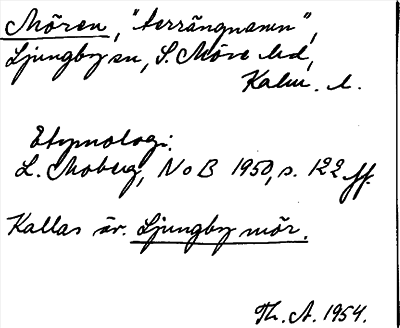 Mören, "terrängnamn",
Ljungby sn, S. Möre hd,
Kalm. l.
Etymologi:
L. Moberg, NoB 1950, s. 122 ff.
Kallas äv. Ljungby mör.
Th. A. 1954.